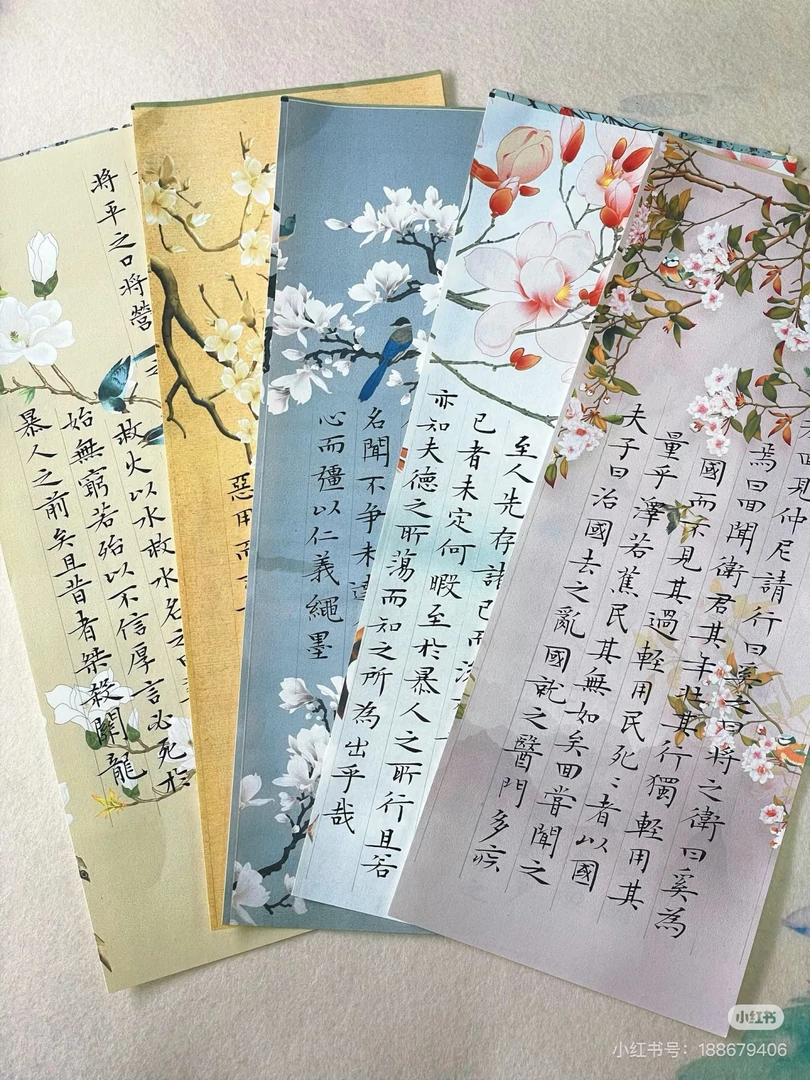 回見仲尼請行曰奚之曰將之衛曰奚為
焉曰回聞衛君其年壯其行獨輕用其
國而不見其過輕用民死〻者以國
量乎澤若蕉民其無如矣回嘗聞之
夫子曰治國去之亂國就之醫門多疾
至人先存諸已而
已者未定何暇至於暴人之所行且若
亦知夫德之所蕩而知之所為出乎哉
名聞不爭未達
心而彊以仁義繩墨
惡用而
將平之口將營
救火以水救水名之曰
始無窮若殆以不信厚言必死於
暴人之前矣且昔者桀殺關龍
小红书
小红书号：188679406